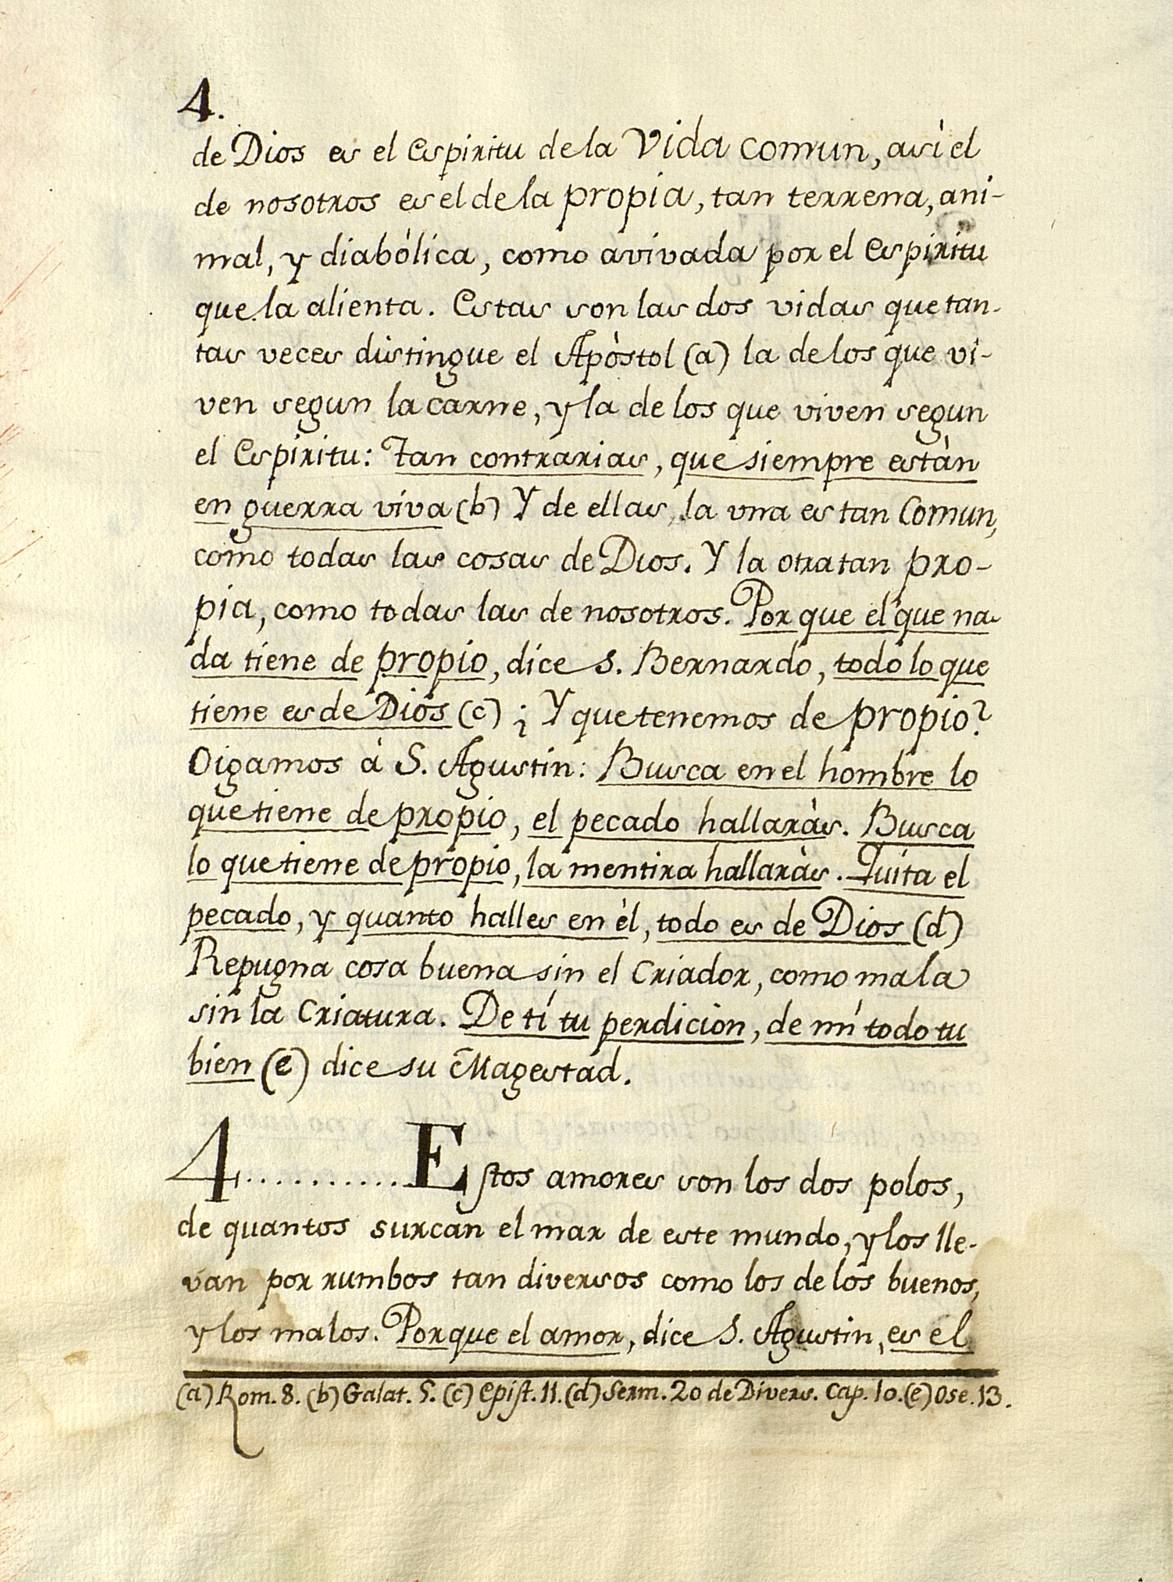 4.
de Dios es el Espiritu de la Vida comun, asi el
de nosotros es el de la propia, tan terrena, ani-
mal, y diabólica, como avivada por el Espiritu
que la alienta. Estas son las dos vidas que tan-
tas veces distingue el Apóstol (a) la de los que vi-
ven segun la carne, y la de los que viven segun
el Espiritu: Tan contrarias, que siempre están
en guerra viva (b) Y de ellas, la vna es tan Comun,
como todas las cosas de Dios. Y la otra tan pro-
pia, como todas las de nosotros. Por que el que na-
da tiene de propio, dice S. Bernardo, todo lo que
tiene es de Dios (c) ¿ Y que tenemos de propio?
Oigamos à S. Agustin: Busca en el hombre lo
que tiene de propio, el pecado hallaràs. Busca
lo que tiene de propio, la mentira hallaràs. Quita el
pecado, y quanto halles en èl, todo es de Dios (d)
Repugna cosa buena sin el Criador, como mala
sin la Criatura. De tí tu perdicion, de mí todo tu
bien (e) dice su Magestad.
4..........Estos amores son los dos polos,
de quantos surcan el mar de este mundo, y los lle-
van por rumbos tan diversos como los de los buenos,
y los malos. Porque el amor, dice S. Agustin, es el
(a) Rom. 8. (b) Galat. 5. (c) Epist. 11. (d) Serm. 20 de Divers. Cap. 10. (e) Ose. 13.